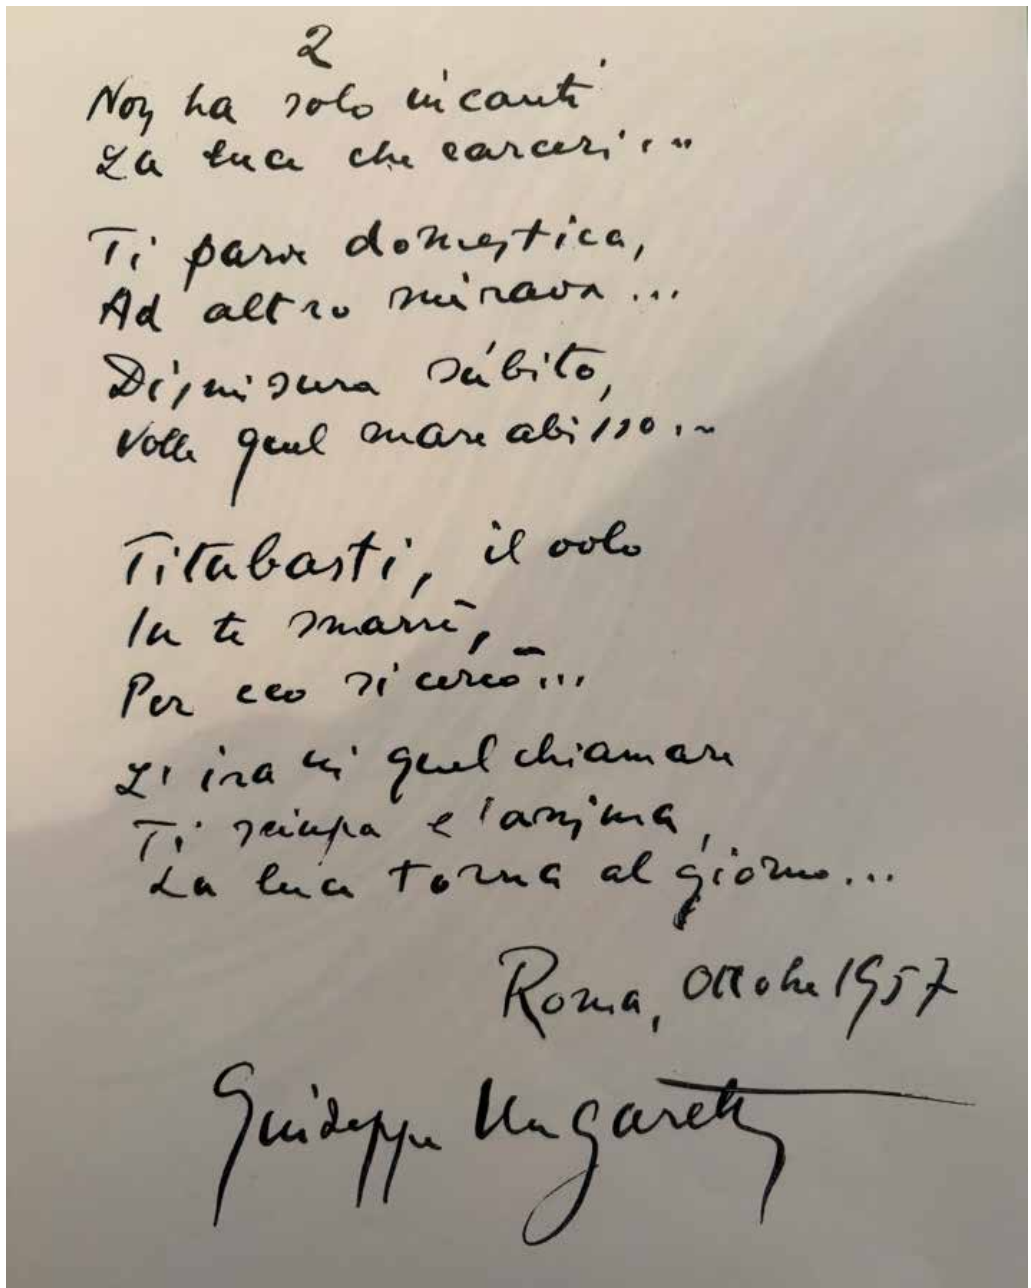 2
Non ha solo incanti
La luce che carceri...
Ti parve domestica,
Ad altro mirava...
Dismisura súbito,
Volle quel mare abisso...
Titubasti, il volo
In te smarrì,
Per eco si cercò...
L'ira in quel chiamare
Ti sciupa l'anima,
La luce torna al giorno...
Roma, Ottobre 1957
Giuseppe Ungaretti